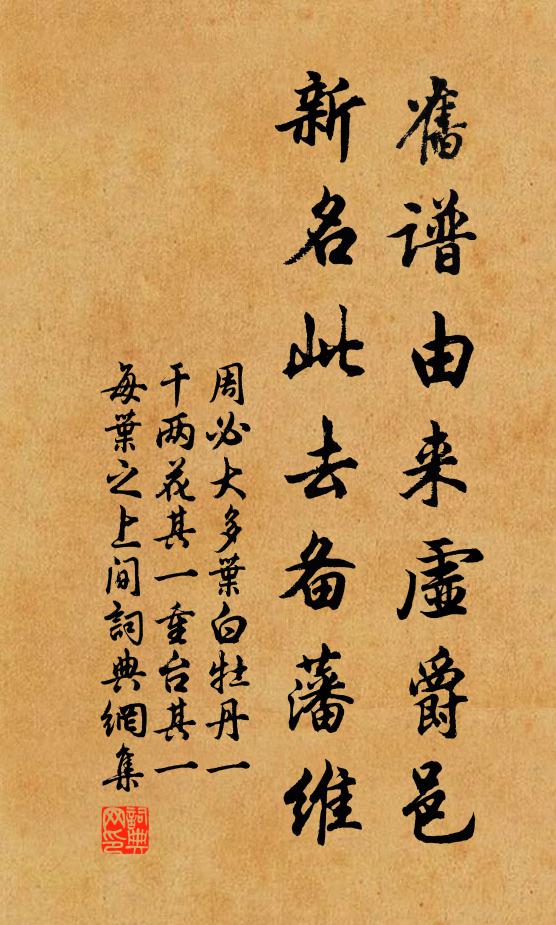 舊谱由来虚爵邑
新名此去备藩维
周必大多葉白牡丹一
干两花其一重台其一
每葉之上间詞典網集
詞典网印